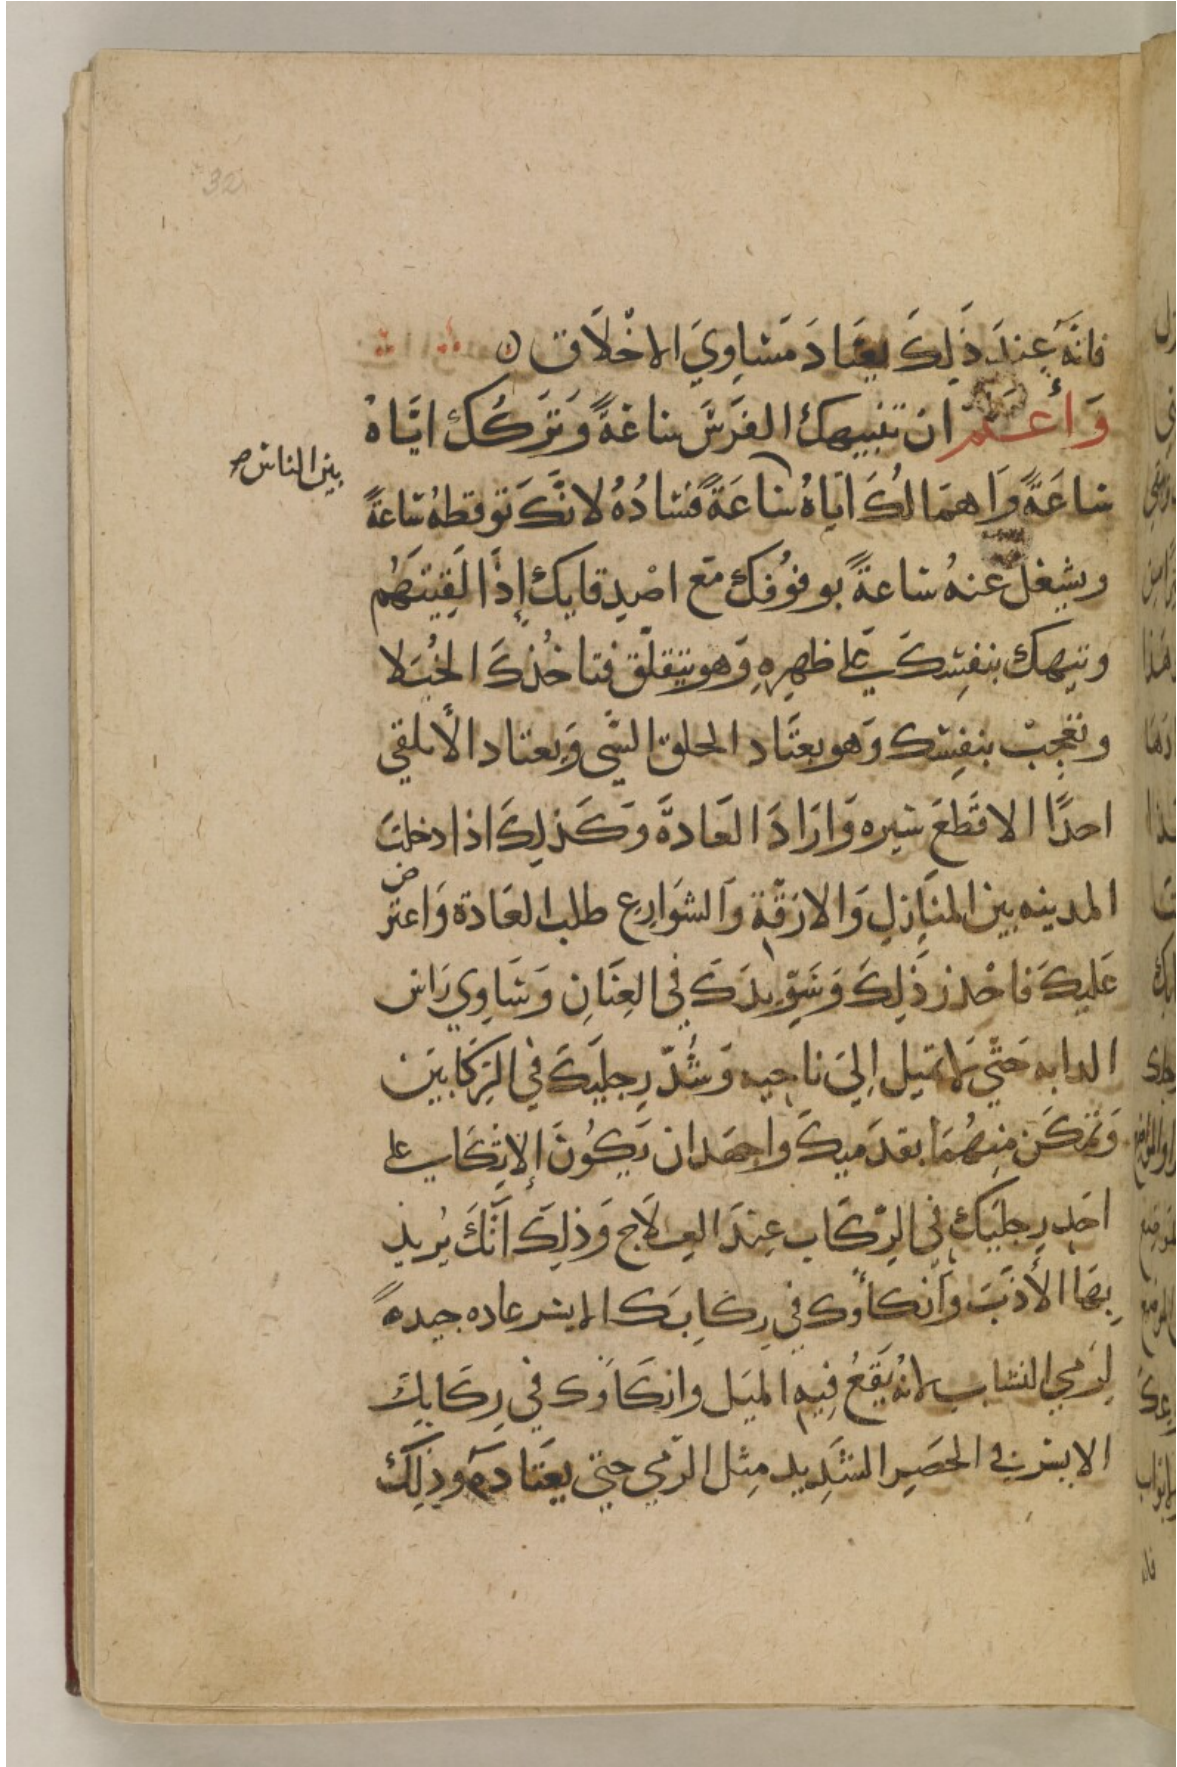 32
فانَّه عِندَ ذَلِكَ يعتَادَ مَسَاوِيَ الاخْلَاق
وَأعلم ان تنبيهكَ الفرَسَ سَاعَةً وَتَركُكَ ايَّاهُ
بين الناس
سَاعَةً وَاهمَالكَ ايَاهُ سَاعَةً فسَادُهُ لانَّكَ توقظهُ سَاعَةً
ويشغل عنهُ سَاعةً بوقوُفك مَع اصْدِقايك إذَا لَقِيتَهُم
وتيهك بنفِسكَ علي ظهِرِهِ وَهو يتقلّق فتاخُذكَ الخُيَلا
وتعْجبْ بنفِسك وَهو يعتَاد الخلق السَّي وَيعتاد الأ يلقي
احدًا الا قَطعَ سَيره وَارَادَ العَادةَ وَكَذلِكَ اذا دخلتَ
المدينه بين المنَازِلِ وَالازقّة وَالشوَارِع طلب العَادة وَاعترض
عَليكَ فاحْذر ذَلِكَ وَسَوِّ يدَكَ في العِنَانِ وَسَاوِي رَاس
الدابه حَتّي لا تميل اِليَ ناحيه وَشُدّ رِجليَكَ في الرِكَابَين
وَتمكَن منِهُمَا بقدَميكَ واجهَد ان يَكوُنَ الإتِكَاء علي
احَد رِجلَيَك في الرِكَاب عِندَ العِلَاج وَذلِكَ أنَّكَ يُريد
بِهَا الأدَبَ وَأتكاؤك في رِكابَك الايسَر عاده جيدهً
لِرَمي النشاب لانهُ يَقَعُ فِيهِ الميَل واتكَاؤك في رِكَابِكَ
الايسَر في الحصَير الشَدِيد مِثل الرّمي حتي يعَتَادَه وذلِكَ